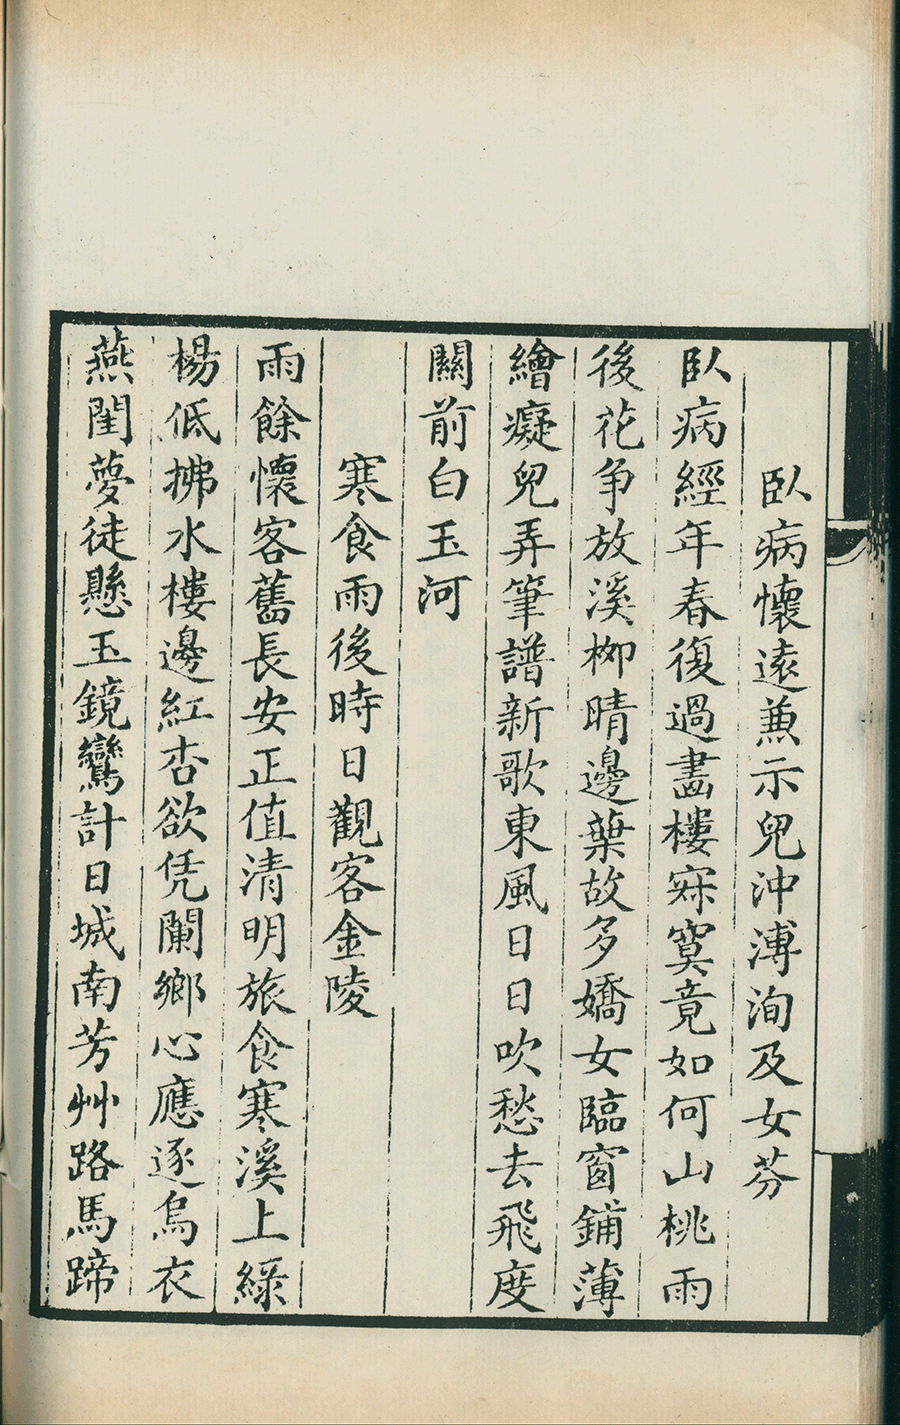 臥病懷遠兼示兒沖溥洵及女芬
臥病經年春復過畫樓寐寞竟如何山桃雨
後花争放溪柳晴邊葉故多嬌女臨窗鋪薄
繪癡兒弄筆譜新歌東風日日吹愁去飛度
關前白玉河
寒食雨後時日觀客金陵
雨餘懷客舊長安正值清明旅食寒溪上綠
楊低拂水樓邊紅杏欲凭闌鄉心應逐烏衣
燕閨夢徒懸玉鏡鸞計日城南芳艸路馬蹄